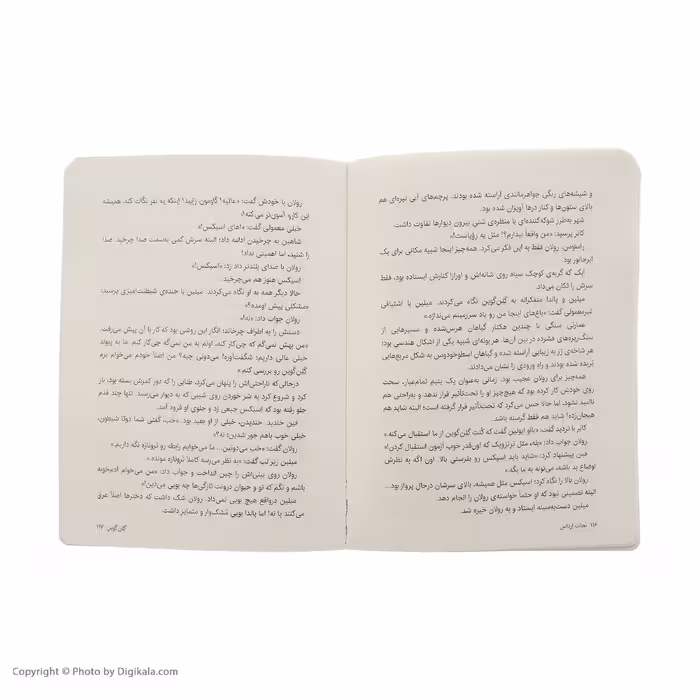 و شیشه‌های رنگی جواهرمانندی آراسته شده بودند. پرچم‌های آبی تیره‌ای هم
بالای ستون‌ها و کنار درها آویزان شده بود.
شهر به‌طرز شوکه‌کننده‌ای با منظره‌ی شنی بیرون دیوارها تفاوت داشت.
کابر پرسید: «من واقعاً بیدارم؟! مثل یه رؤیاست!»
رولان فقط به این فکر می‌کرد. همه‌چیز اینجا شبیه مکانی برای یک
ابرجانور بود.
ابک که گربه‌ی کوچک سیاه روی شانه‌اش و اورازا کنارش ایستاده بود، فقط
سرش را تکان می‌داد.
میلین و پاندا متفکرانه به گلن‌گوین نگاه می‌کردند. میلین با اشتیاقی
غیرمعمولی گفت: «باغ‌های اینجا من رو یاد سرزمینم می‌ندازه.»
عمارتی سنگی با چندین هکتار گیاهان هرس‌شده و مسیرهایی از
سنگ‌ریزه‌های فشرده در بین آن‌ها، هر بوته‌ای شبیه یکی از اشکال هندسی بود؛
هر شاخه‌ی رز به زیبایی آراسته شده و گیاهان اسطوخودوس به شکل مربع‌هایی
بریده شده بودند و راه ورودی را نشان می‌دادند.
همه‌چیز برای رولان عجیب بود. زمانی به‌عنوان یک یتیم تمام‌عیار، سخت
روی خودش کار کرده بود که هیچ‌چیز او را تحت‌تأثیر قرار ندهد و به‌راحتی هم
ناامید نشود. اما حالا حس می‌کرد که تحت‌تأثیر قرار گرفته است! البته شاید هم
هیجان‌زده! شاید هم فقط گرسنه باشد.
کابر با تردید گفت: «بالو اپولین گفت که کُنت گلن‌گوین از ما استقبال می‌کنه.»
رولان جواب داد: «بله، مثل ترنزویک که اون‌قدر خوب ازمون استقبال کردن!»
فین پیشنهاد کرد: «شاید باید اسیکس رو بفرستی بالا. اون اگه به نظرش
اوضاع بد باشه، می‌تونه به ما بگه.»
رولان بالا را نگاه کرد؛ اسیکس مثل همیشه، بالای سرشان درحال پرواز بود...
البته تضمینی نبود که او حتماً خواسته‌ی رولان را انجام دهد.
میلین دست‌به‌سینه ایستاد و به رولان خیره شد.
۱۱۶ نجات اِرِداس
رولان با خودش گفت: «عالیه! گاومون زایید! اینکه یه نفر نگات کنه، همیشه
این کارو آسون‌تر می‌کنه!»
خیلی معمولی گفت: «آهای اسیکس!»
شاهین به چرخیدن ادامه داد؛ البته سرش کمی به‌سمت صدا چرخید. صدا
را شنید، اما اهمیتی نداد!
رولان با صدای بلندتر داد زد: «اسیکس!»
اسیکس هنوز هم می‌چرخید.
حالا دیگر همه به او نگاه می‌کردند. میلین با خنده‌ی شیطنت‌آمیزی پرسید:
«مشکلی پیش اومده؟»
رولان جواب داد: «نه!»
دستش را به اطراف چرخاند؛ انگار این روشی بود که کار با آن پیش می‌رفت.
«من بهش نمی‌گم که چی‌کار کنه، اونم به من نمی‌گه چی‌کار کنم. ما یه پیوند
خیلی عالی داریم؛ شگفت‌آوره! می‌دونی چیه؟ من اصلاً خودم می‌خوام برم
گلن‌گوین رو بررسی کنم.»
درحالی که ناراحتی‌اش را پنهان می‌کرد، طنابی را که دور کمرش بسته بود، باز
کرد و شروع کرد به سُر خوردن روی شیبی که به دیوار می‌رسید. تنها چند قدم
جلو رفته بود که اسیکس جیغی زد و جلوی او فرود آمد.
فین خندید. خندیدن، خیلی از او بعید بود. «خب، گفتی شما دوتا شبیه‌ون،
خیلی خوب باهم جور شدین؛ نه؟»
رولان گفت: «خب می‌دونین... ما می‌خوایم رابطه رو تروتازه نگه داریم.»
میلین زیر لب گفت: «به نظر می‌رسه کاملاً تروتازه مونده.»
رولان روی بینی‌اش را چین انداخت و جواب داد: «من می‌خوام آدم‌خوبه
باشم و نگم که تو و حیوان درونت تازگی‌ها چه بویی می‌دین!»
میلین درواقع هیچ بویی نمی‌داد. رولان شک داشت که دخترها اصلاً عرق
می‌کنند یا نه! اما پاندا بویی مُشک‌وار و متمایز داشت.
گلن‌گوین ۱۱۷
Copyright © Photo by Digikala.com